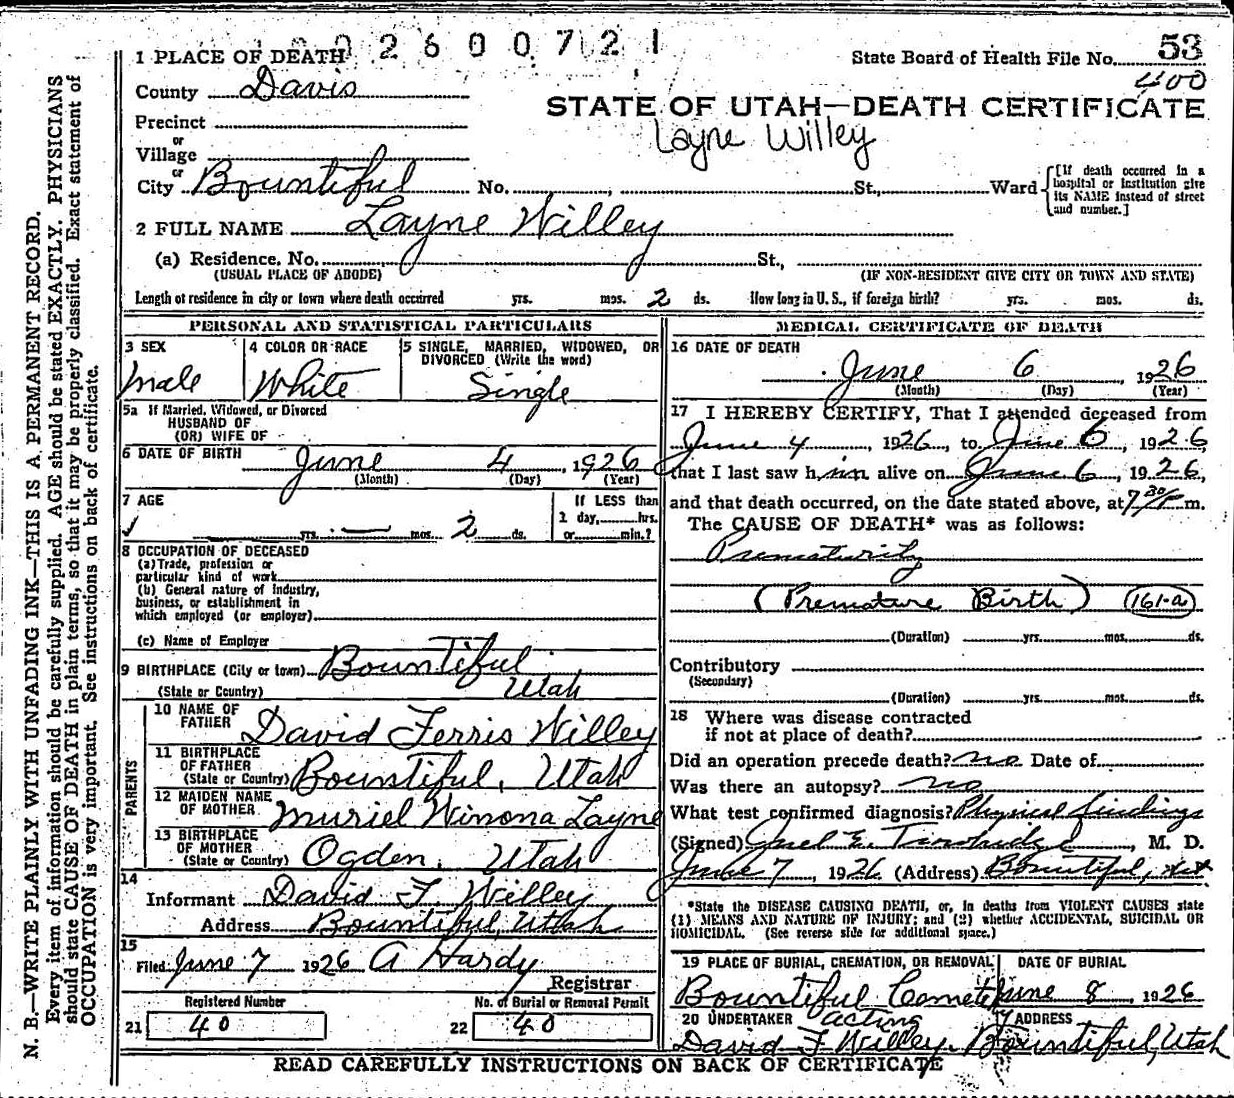 0 2 6 0 0 7 2 1
1 PLACE OF DEATH
State Board of Health File No. 53
400
County Davis
STATE OF UTAH—DEATH CERTIFICATE
Layne Willey
Precinct
or
Village
or
City Bountiful No. , St., Ward
[If death occurred in a hospital or institution give its NAME instead of street and number.]
2 FULL NAME Layne Willey
(a) Residence. No. St.,
(USUAL PLACE OF ABODE) (IF NON-RESIDENT GIVE CITY OR TOWN AND STATE)
Length of residence in city or town where death occurred yrs. mos. 2 ds. How long in U. S., if foreign birth? yrs. mos. ds.
PERSONAL AND STATISTICAL PARTICULARS
3 SEX
Male
4 COLOR OR RACE
White
5 SINGLE, MARRIED, WIDOWED, OR
DIVORCED (Write the word)
Single
5a If Married, Widowed, or Divorced
HUSBAND OF
(OR) WIFE OF
6 DATE OF BIRTH June 4, 1926
(Month) (Day) (Year)
7 AGE
yrs. — mos. 2 ds.
If LESS than
1 day, hrs.
or min.?
8 OCCUPATION OF DECEASED
(a) Trade, profession or
particular kind of work
(b) General nature of Industry,
business, or establishment in
which employed (or employer)
(c) Name of Employer
9 BIRTHPLACE (City or town) Bountiful
(State or Country) Utah
PARENTS
10 NAME OF
FATHER David Ferris Willey
11 BIRTHPLACE
OF FATHER
(State or Country) Bountiful, Utah
12 MAIDEN NAME
OF MOTHER Muriel Winona Layne
13 BIRTHPLACE
OF MOTHER
(State or Country) Ogden, Utah
14
Informant David F. Willey
Address Bountiful, Utah
15
Filed June 7 1926 A Hardy
Registrar
Registered Number
21 40
No. of Burial or Removal Permit
22 40
MEDICAL CERTIFICATE OF DEATH
16 DATE OF DEATH
June 6, 1926
(Month) (Day) (Year)
17 I HEREBY CERTIFY, That I attended deceased from
June 4, 1926, to June 6, 1926,
that I last saw him alive on June 6, 1926,
and that death occurred, on the date stated above, at 7 30 P m.
The CAUSE OF DEATH* was as follows:
Prematurity
(Premature Birth) 161-a
(Duration) yrs. mos. ds.
Contributory
(Secondary)
(Duration) yrs. mos. ds.
18 Where was disease contracted
if not at place of death?
Did an operation precede death? no Date of
Was there an autopsy? no
What test confirmed diagnosis? Physical findings
(Signed) E. , M. D.
June 7, 1926 (Address) Bountiful,
*State the DISEASE CAUSING DEATH, or, in deaths from VIOLENT CAUSES state
(1) MEANS AND NATURE OF INJURY; and (2) whether ACCIDENTAL, SUICIDAL OR
HOMICIDAL. (See reverse side for additional space.)
19 PLACE OF BURIAL, CREMATION, OR REMOVAL DATE OF BURIAL
Bountiful Cemetery June 8, 1926
20 UNDERTAKER acting ADDRESS
David F Willey Bountiful, Utah
READ CAREFULLY INSTRUCTIONS ON BACK OF CERTIFICATE
N. B.—WRITE PLAINLY WITH UNFADING INK—THIS IS A PERMANENT RECORD.
Every item of information should be carefully supplied. AGE should be stated EXACTLY. PHYSICIANS
should state CAUSE OF DEATH in plain terms, so that it may be properly classified. Exact statement of
OCCUPATION is very important. See instructions on back of certificate.